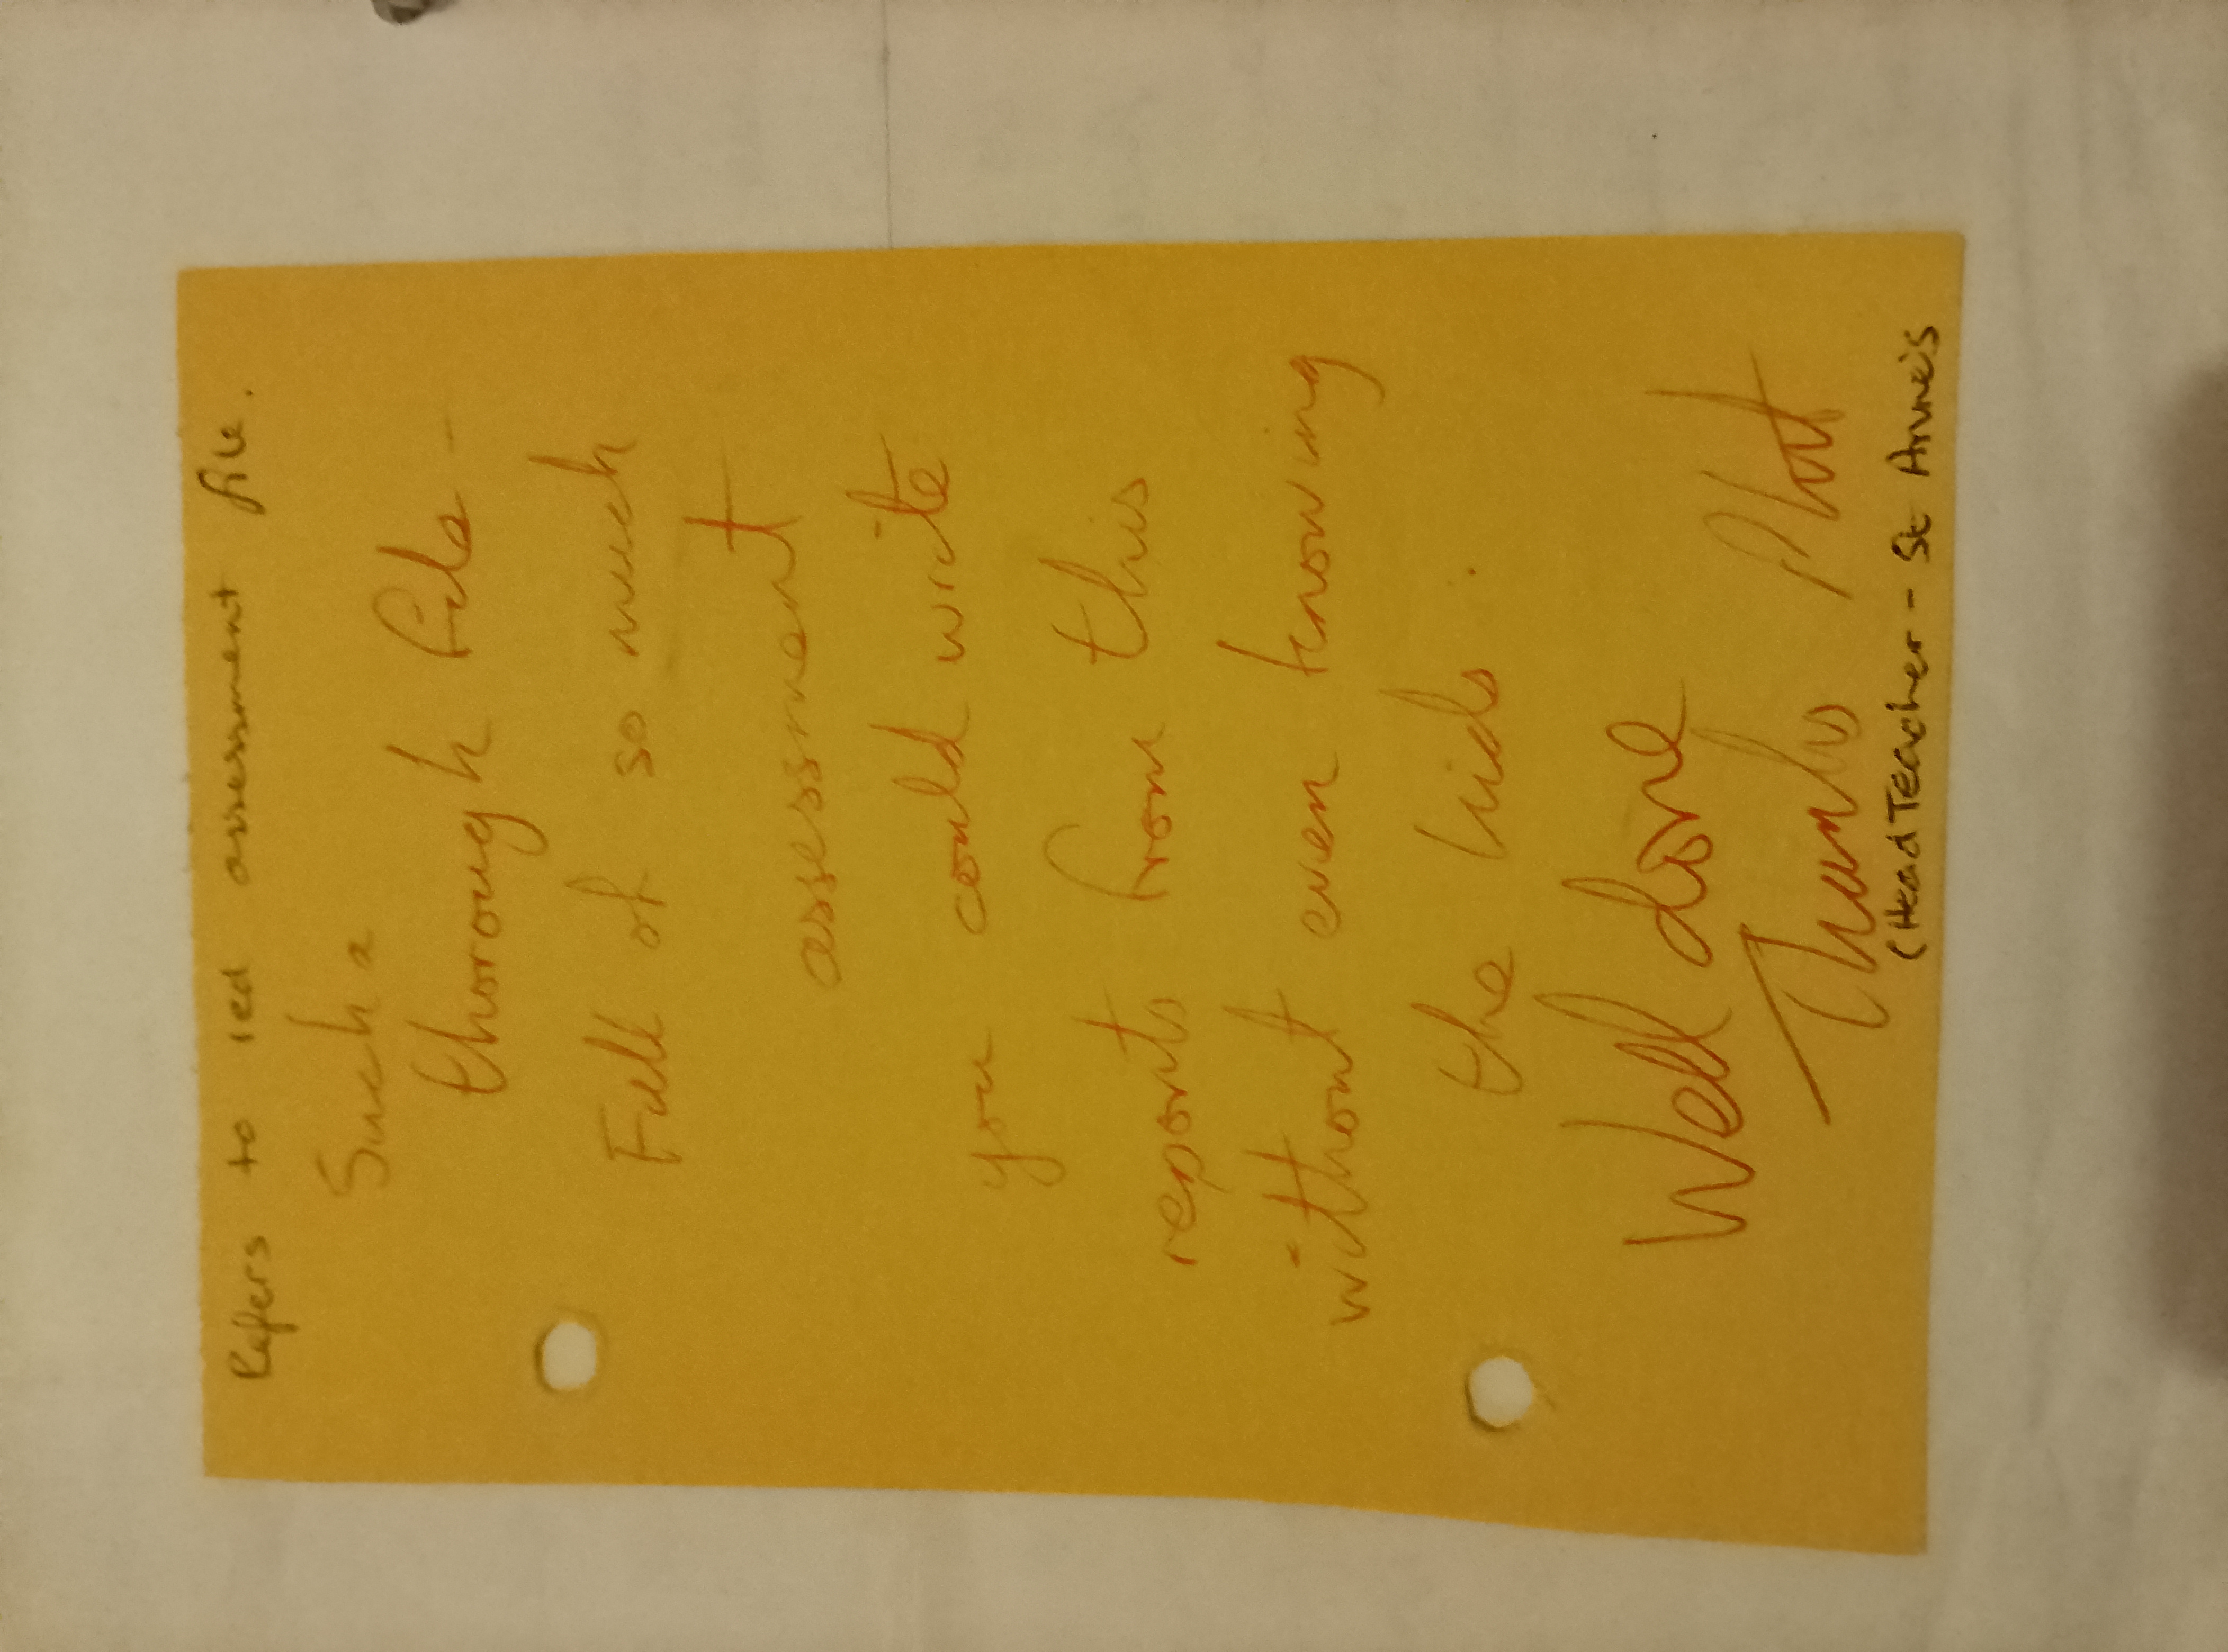 Refers to red assessment file.
Such a
thorough file -
Full of so much
assessment
you could write
reports from this
without even knowing
the kids.
Well done
Thanks
(Head Teacher - St Anne's